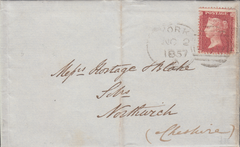 1857
Messrs Hostage & Blake
Solrs
Northwich
(Cheshire)